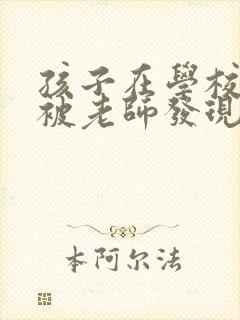 孩子在學校
被老師發現
本阿尔法